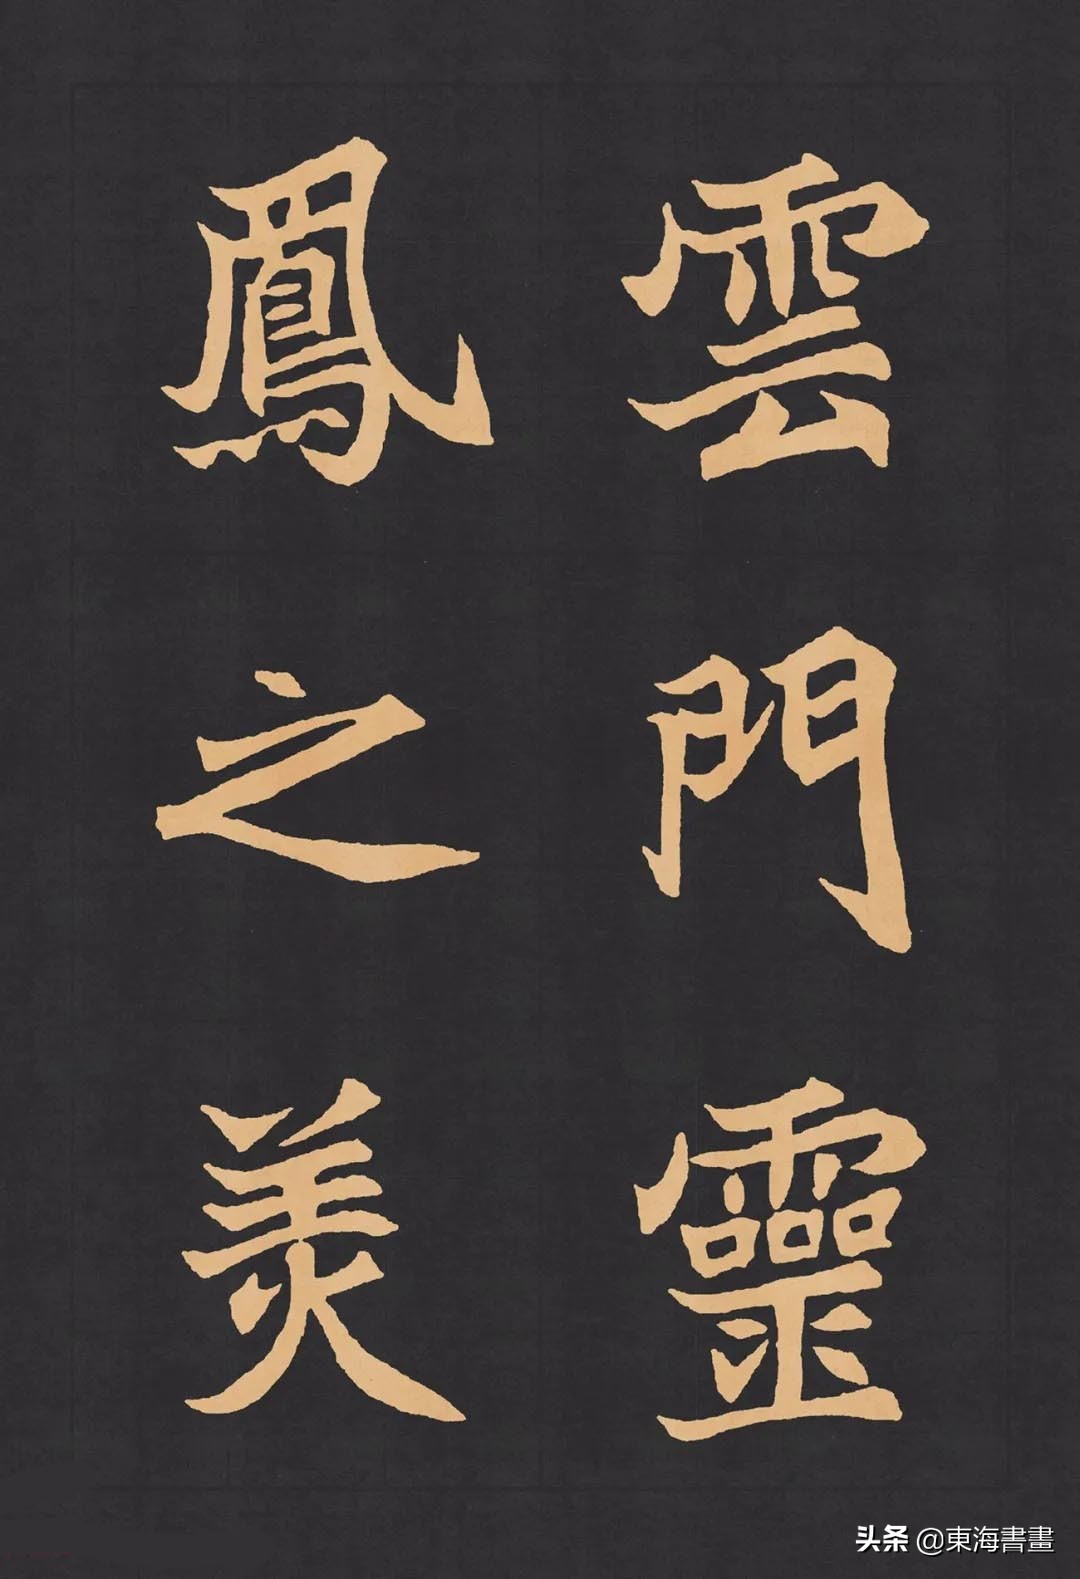 雲門靈
鳳之美
头条 @東海書畫